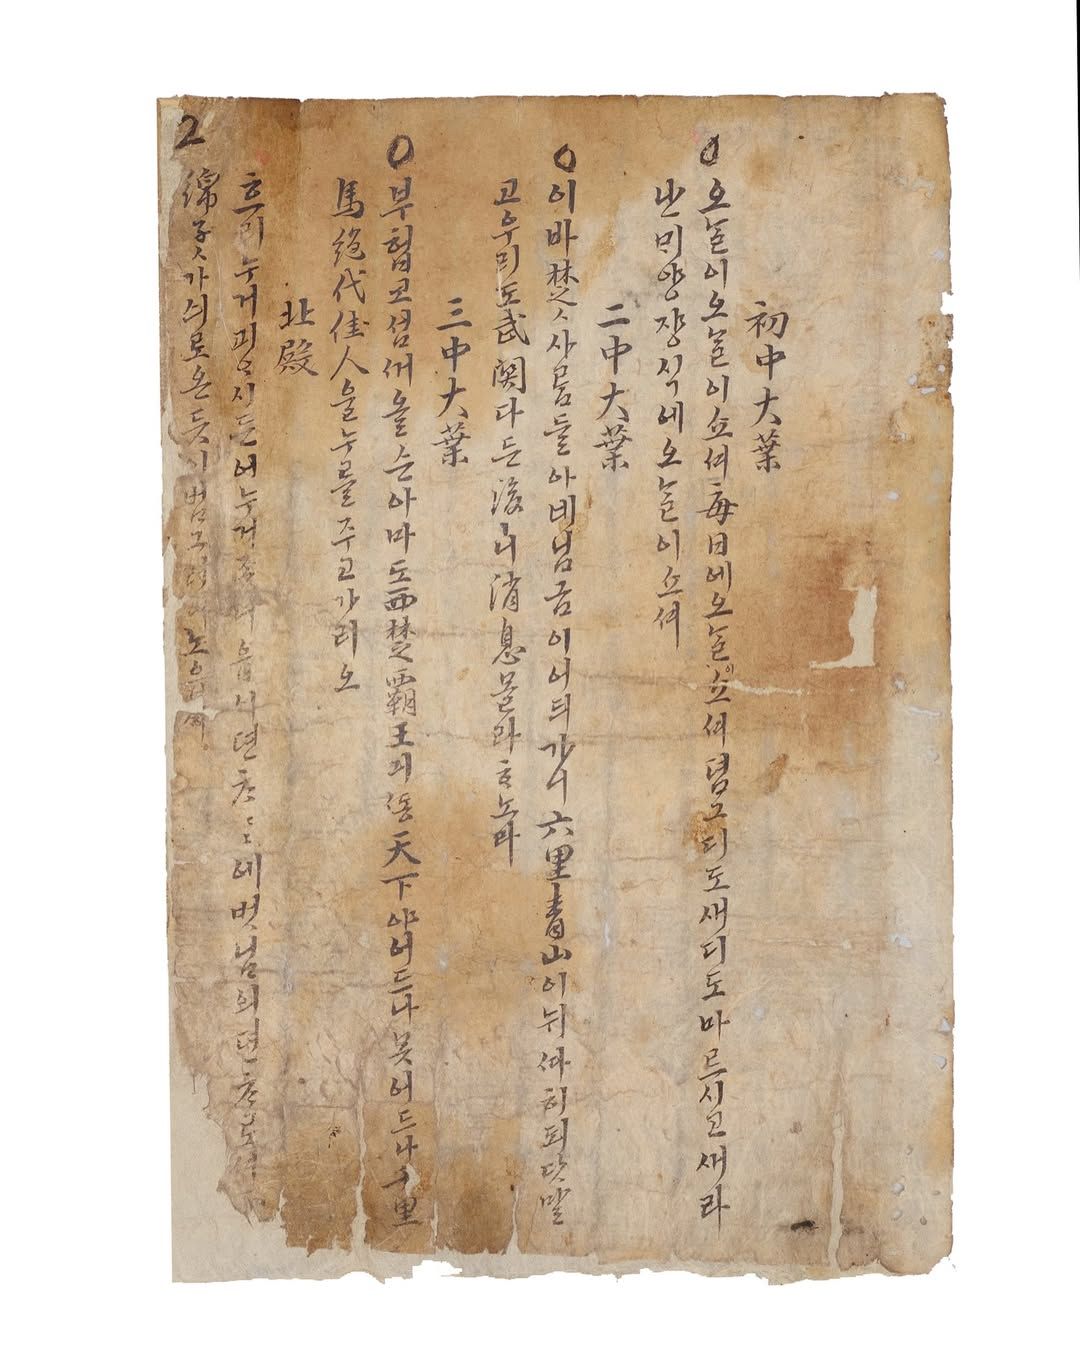 初中大葉
오ᄂᆞᆯ이오ᄂᆞᆯ이쇼셔每日에오ᄂᆞᆯ이쇼셔뎜그디도새디도마르시고새라
난ᄆᆡ양쟝식에오ᄂᆞᆯ이쇼셔
二中大葉
이바楚ㅅ사ᄅᆞᆷ들아네님금이어듸가니六里靑山이뉘ᄯᅡ히되닷말
고우리도武關다든後ㅣ니消息몰라ᄒᆞ노라
三中大葉
부헙코섬ᄭᅥ올슨아마도西楚覇王긔ᄯᅩᆼ天下야어드나못어드나千里
馬絶代佳人을누를주고가리오
北殿
흐리누거괴ᄋᆞ시든어누거좃니ᄋᆞᆸ시뎐ᄎᆞᄎᆞ에벗님의뎐ᄎᆞ로셔
綿ᄌᆞᆺ가싀로온듯시범그려노ᄋᆞᆸ
2